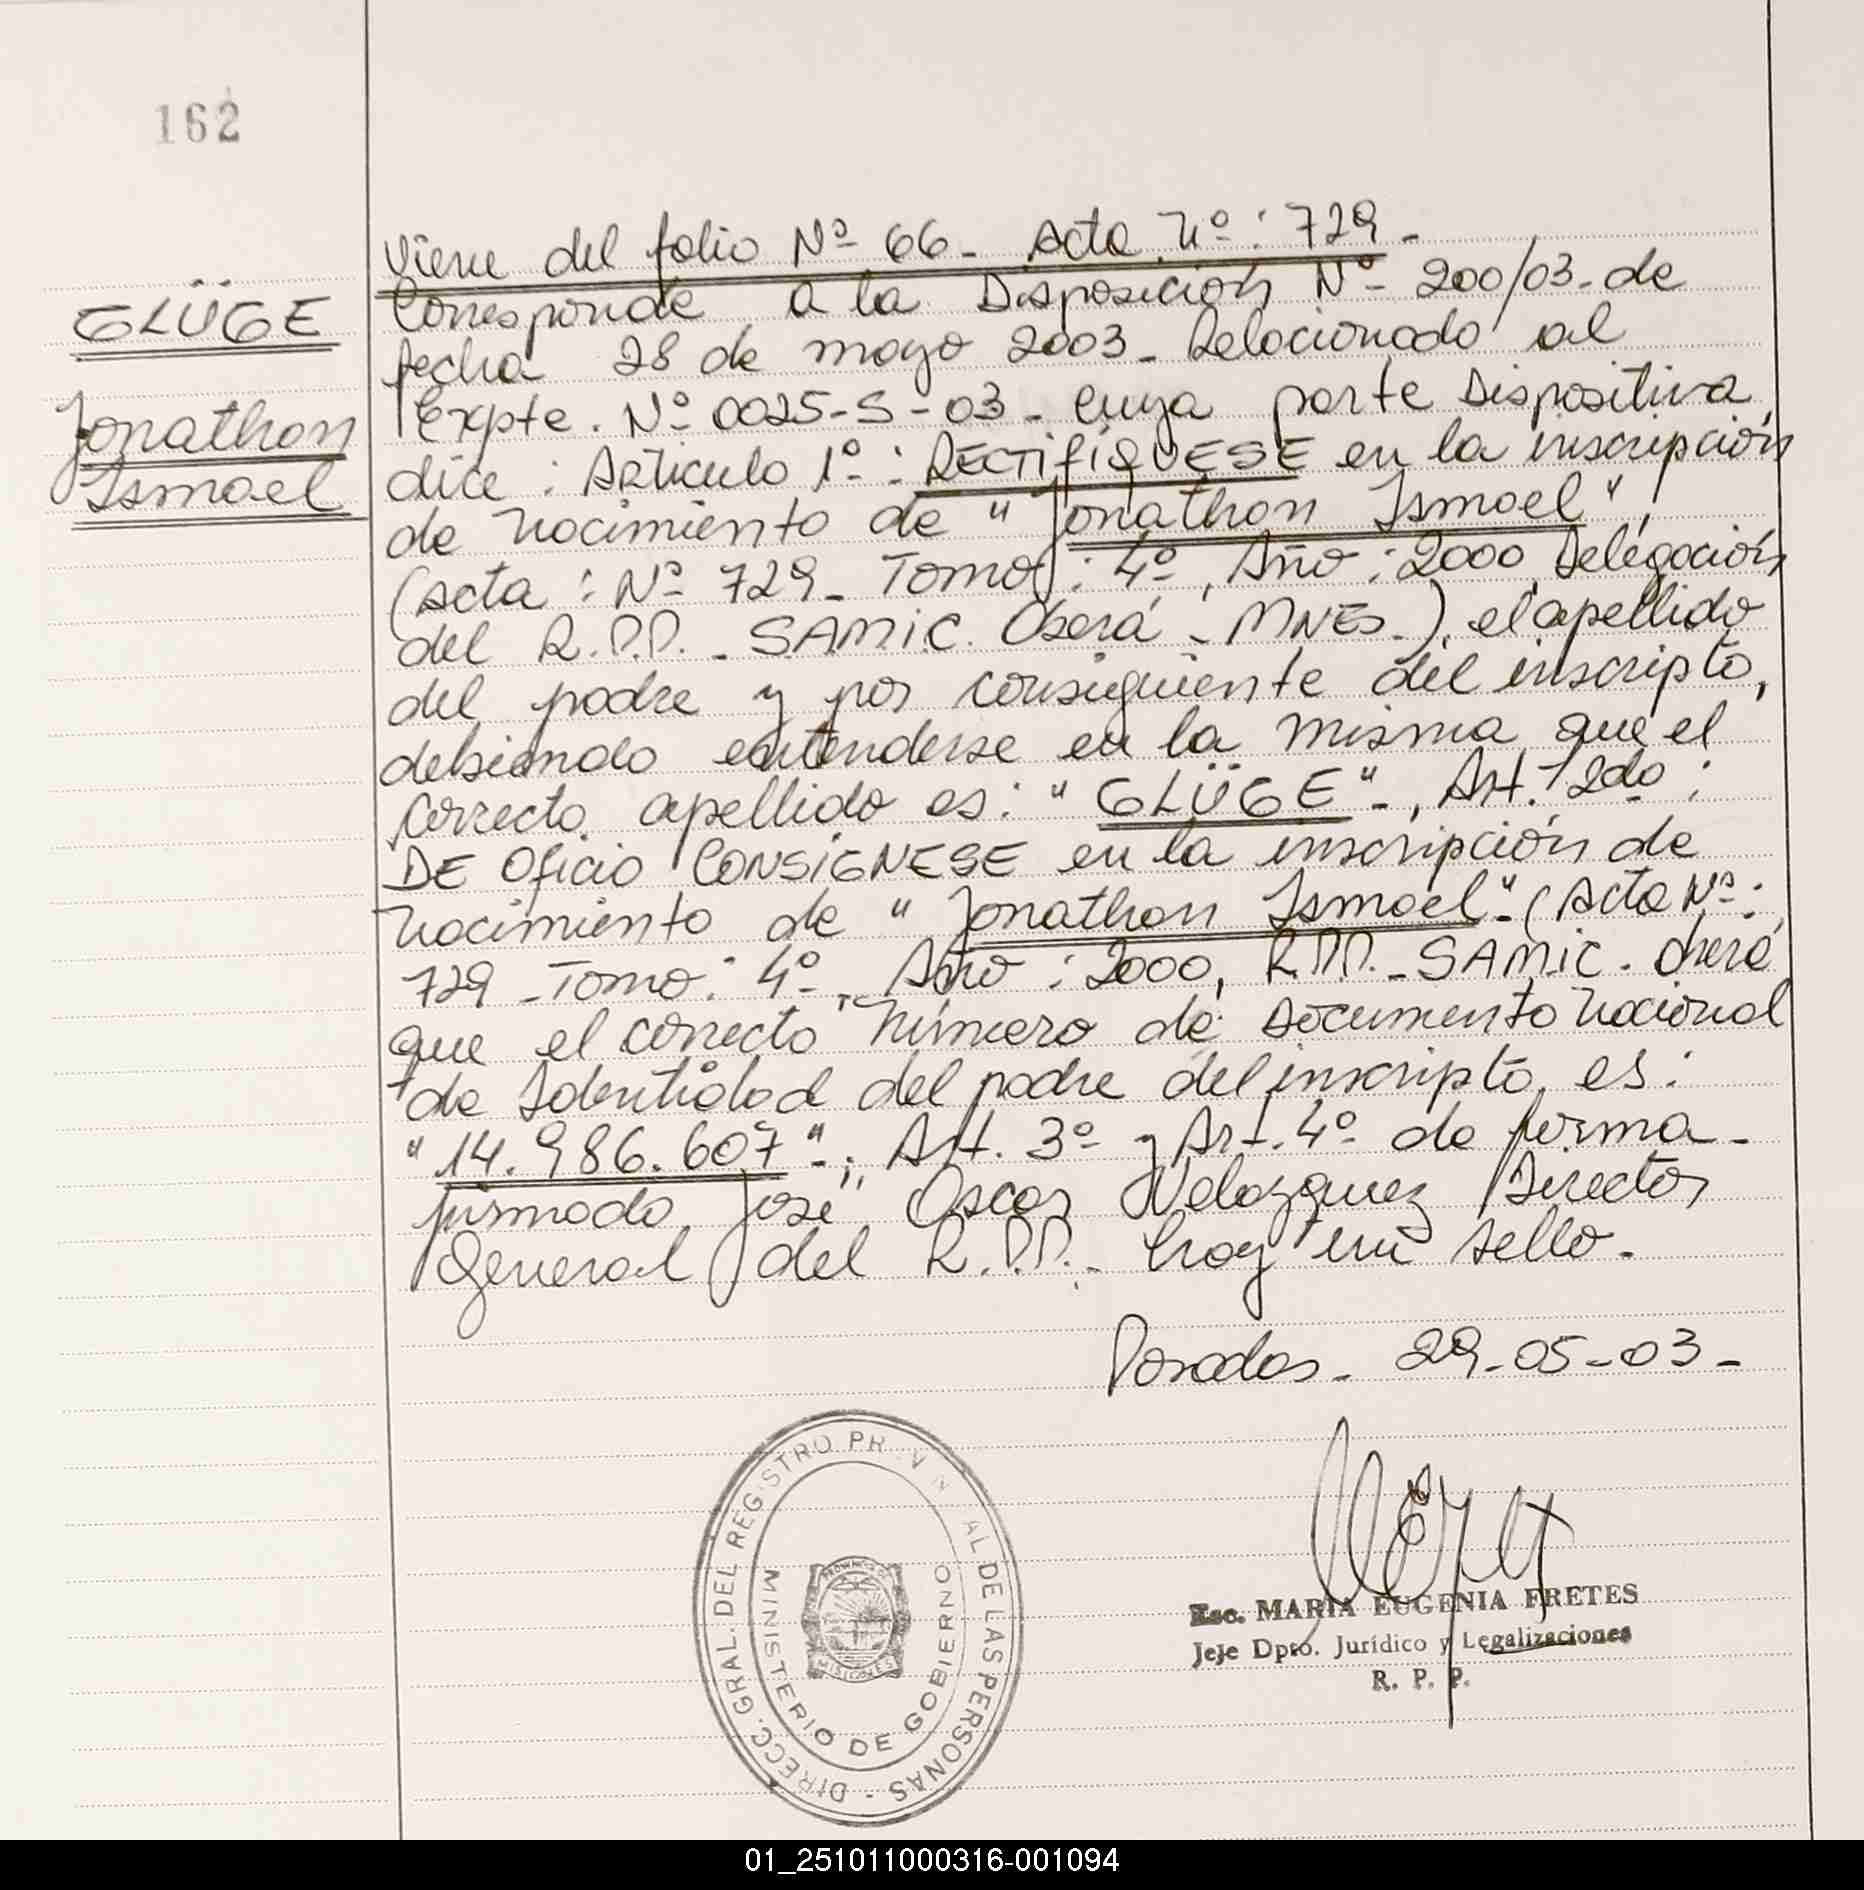 162
GLÜGE
Jonathan
Ismael
Viene del folio Nº 66- Acta Nº: 729-
Corresponde a la Disposición Nº 200/03- de
fecha 28 de mayo 2003- Relacionado al
Expte. Nº 0025-S-03- cuya parte Dispositiva
dice: Articulo 1º: RECTIFÍQUESE en la inscripción
de nacimiento de "Jonathan Ismael",
(Acta: Nº 729- Tomo: 4º, Año: 2000, Delegación
del R.P.P. - SAMIC. Oberá - MNES.), el apellido
del padre y por consiguiente del inscripto,
debiendo entenderse en la misma que el
correcto apellido es: "GLÜGE"-, Art. 2do:
DE OFICIO CONSIGNESE en la inscripción de
nacimiento de "Jonathan Ismael"- (Acta Nº:
729 - Tomo: 4º, Año: 2000, R.P.P. - SAMIC. Oberá
que el correcto número de Documento Nacional
de Identidad del padre del inscripto, es:
"14.986.607"-; Art. 3º y Art. 4º de forma-
firmado José Oscar Velazquez Director
General del R.P.P.- hay un sello.
Posadas- 29-05-03-
DIRECC. GRAL. DEL REGISTRO PROVINCIAL DE LAS PERSONAS -
MINISTERIO DE GOBIERNO
MISIONES
Esc. MARIA EUGENIA FRETES
Jeje Dpto. Jurídico y Legalizaciones
R. P. P.
01_251011000316-001094